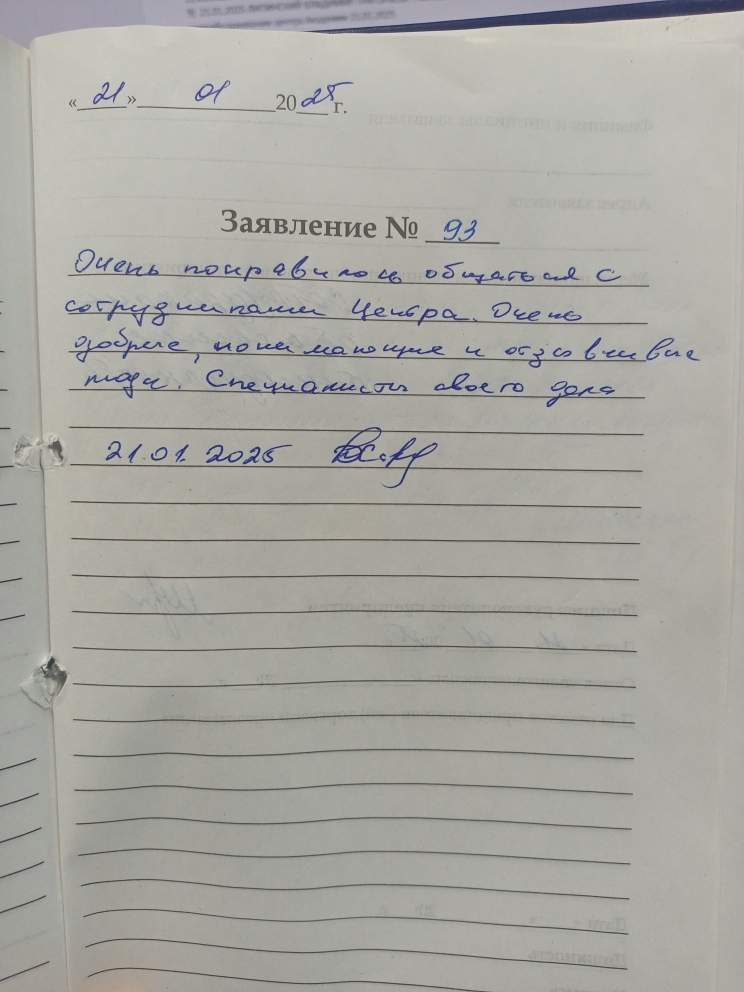 «21» 01 2025 г.
Заявление № 93
Очень понравилось общаться с
сотрудниками Центра. Очень
добрые, понимающие и отзывчивые
люди. Специалисты своего дела
21.01.2025